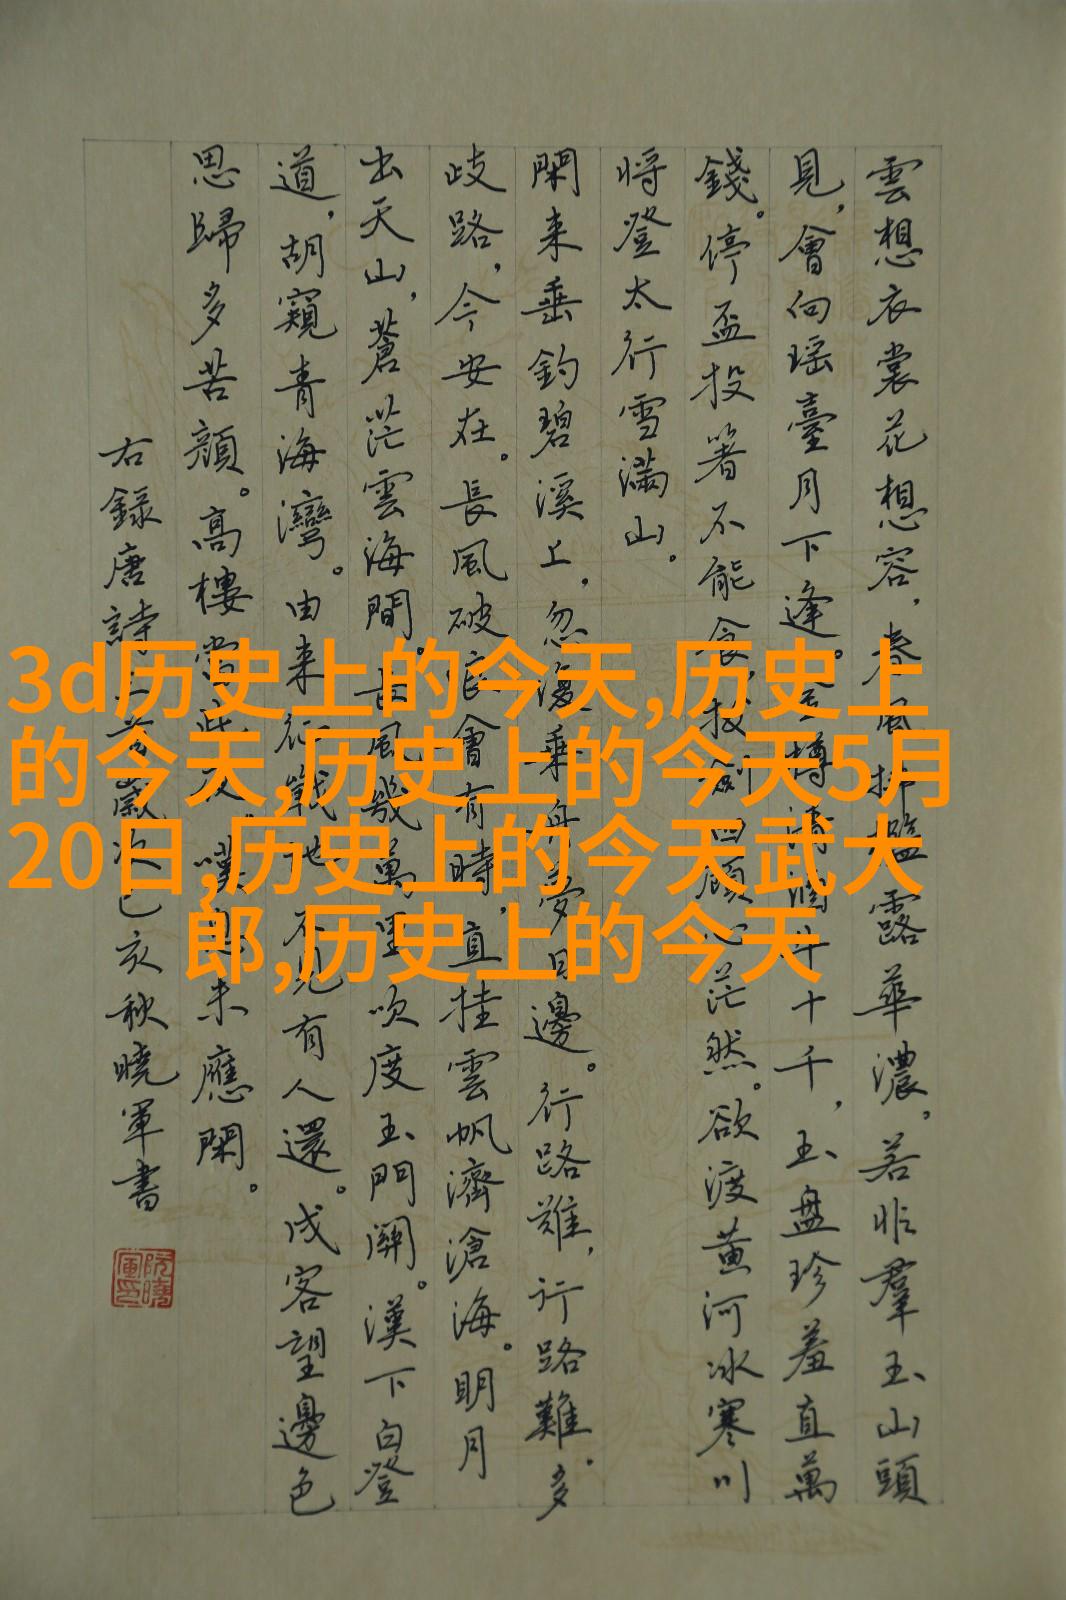 雲想衣裳花想容，春風拂檻露華濃。若非羣玉山頭
見，會向瑶臺月下逢。金樽清酒斗十千，玉盤珍羞直萬
錢。停盃投箸不能食，拔劍四顧心茫然。欲渡黄河冰寒川
將登太行雪滿山。
閑来垂釣碧溪上，忽復乘舟夢日邊。行路難，行路難，多
歧路，今安在。長風破浪會有時，直挂雲帆濟滄海。明月
出天山，蒼茫雲海間。長風幾萬里，吹度玉門關。漢下白登
道，胡窺青海灣。由来征戰地，不見有人還。戍客望邊色
思歸多苦顔。高樓當此夜，嘆息未應閑。
右録唐詩三首歲次己亥秋曉軍書
阮曉軍印
3d历史上的今天,历史上
的今天,历史上的今天5月
20日,历史上的今天武大
郎,历史上的今天